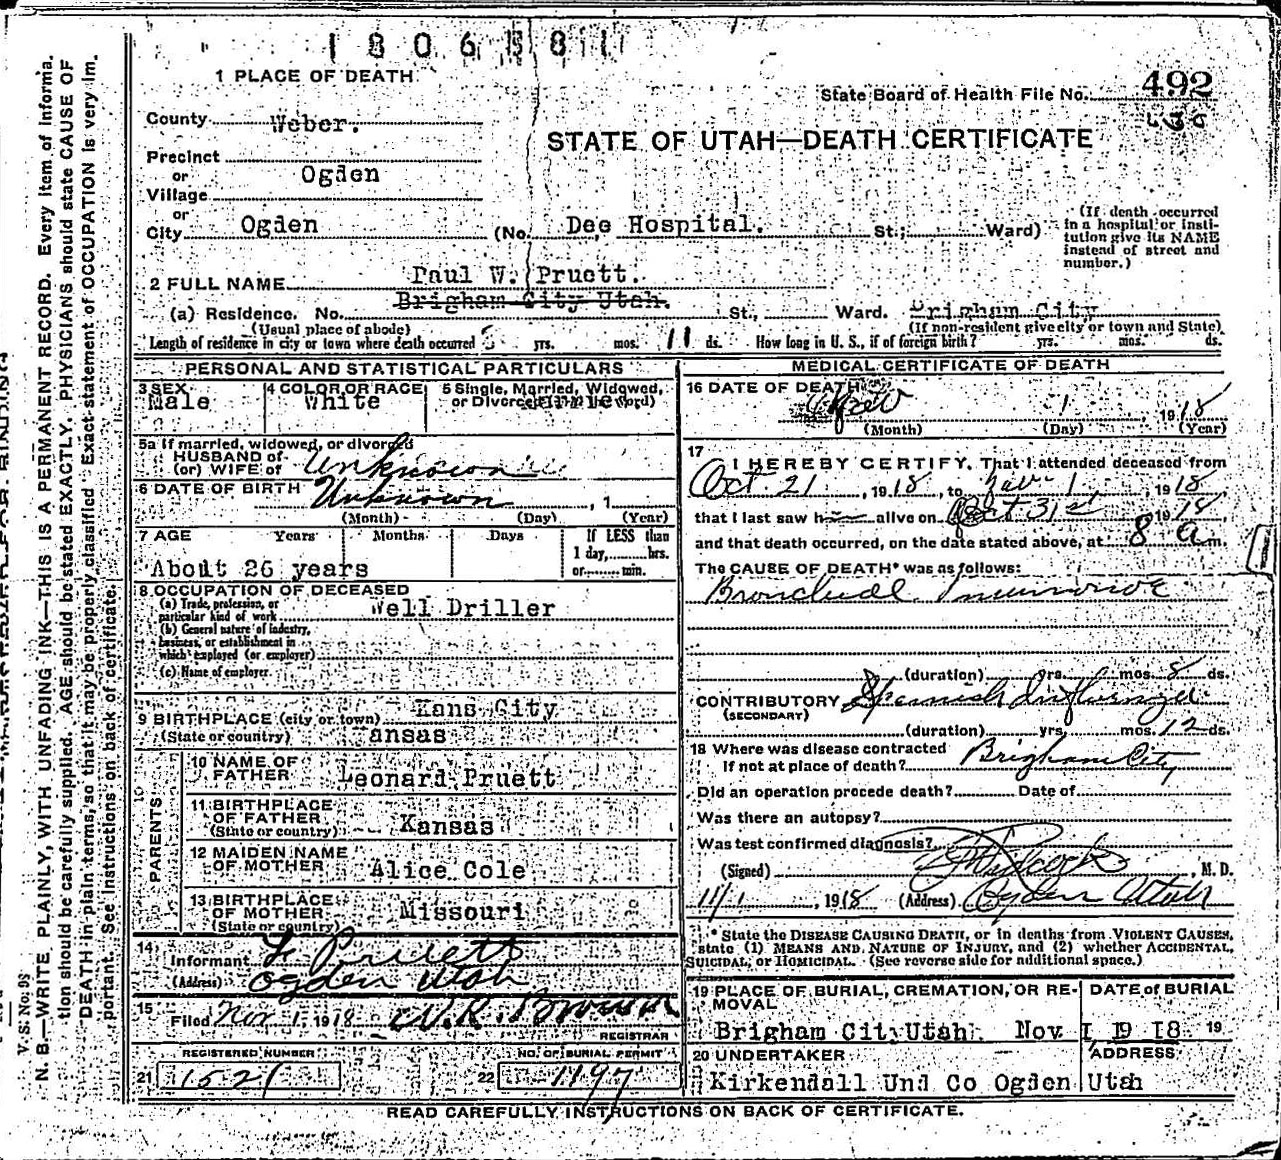 1806
1 PLACE OF DEATH
State Board of Health File No. 492
County Weber.
STATE OF UTAH—DEATH CERTIFICATE
Precinct
or Ogden
Village
or
City Ogden (No. Dee Hospital. St.; Ward)
(If death occurred
in a hospital or insti-
tution give its NAME
instead of street and
number.)
2 FULL NAME Paul W. Pruett.
Brigham City Utah.
(a) Residence. No. St., Ward. Brigham City
(Usual place of abode) (If non-resident give city or town and State)
Length of residence in city or town where death occurred yrs. mos. 11 ds. How long in U. S., if of foreign birth? yrs. mos. ds.
PERSONAL AND STATISTICAL PARTICULARS
3 SEX
Male
4 COLOR OR RACE
White
5 Single, Married, Widowed,
or Divorced (write the word)
5a If married, widowed, or divorced
HUSBAND of
(or) WIFE of Unknown
6 DATE OF BIRTH Unknown , 1
(Month) (Day) (Year)
7 AGE Years Months Days
If LESS than
1 day, hrs.
or min.
About 26 years
8 OCCUPATION OF DECEASED
(a) Trade, profession, or
particular kind of work Well Driller
(b) General nature of industry,
business, or establishment in
which employed (or employer)
(c) Name of employer
9 BIRTHPLACE (city or town) Kans City
(State or country) ansas
PARENTS
10 NAME OF
FATHER Leonard Pruett
11 BIRTHPLACE
OF FATHER
(State or country) Kansas
12 MAIDEN NAME
OF MOTHER Alice Cole
13 BIRTHPLACE
OF MOTHER
(State or country) Missouri
14
Informant L Pruett
(Address) Ogden Utah
15
Filed Nov 1, 1918 W.R. Brown
REGISTRAR
REGISTERED NUMBER NO. OF BURIAL PERMIT
21 1521 22 1197
MEDICAL CERTIFICATE OF DEATH
16 DATE OF DEATH
Nov 1, 1918
(Month) (Day) (Year)
17
I HEREBY CERTIFY, That I attended deceased from
Oct 21, 1918, to Nov 1, 1918
that I last saw h alive on Oct 31st 1918,
and that death occurred, on the date stated above, at 8 a m.
The CAUSE OF DEATH* was as follows:
Bronchial Pneumonia
(duration) yrs. mos. 8 ds.
CONTRIBUTORY Spanish Influenza
(SECONDARY)
(duration) yrs. mos. 12 ds.
18 Where was disease contracted
If not at place of death? Brigham City
Did an operation procede death? Date of
Was there an autopsy?
Was test confirmed diagnosis?
(Signed) , M. D.
11/1, 1918 (Address) Ogden Utah
* State the DISEASE CAUSING DEATH, or in deaths from VIOLENT CAUSES,
state (1) MEANS AND NATURE OF INJURY, and (2) whether ACCIDENTAL,
SUICIDAL, or HOMICIDAL. (See reverse side for additional space.)
19 PLACE OF BURIAL, CREMATION, OR RE-
MOVAL
DATE of BURIAL
Brigham City Utah. Nov 1 1918 19
20 UNDERTAKER ADDRESS
Kirkendall Und Co Ogden Utah
READ CAREFULLY INSTRUCTIONS ON BACK OF CERTIFICATE.
V. S. No.
N. B.—WRITE PLAINLY, WITH UNFADING INK—THIS IS A PERMANENT RECORD. Every item of informa-
tion should be carefully supplied. AGE should be stated EXACTLY. PHYSICIANS should state CAUSE OF
DEATH in plain terms, so that it may be properly classified. Exact statement of OCCUPATION is very im-
portant. See instructions on back of certificate.